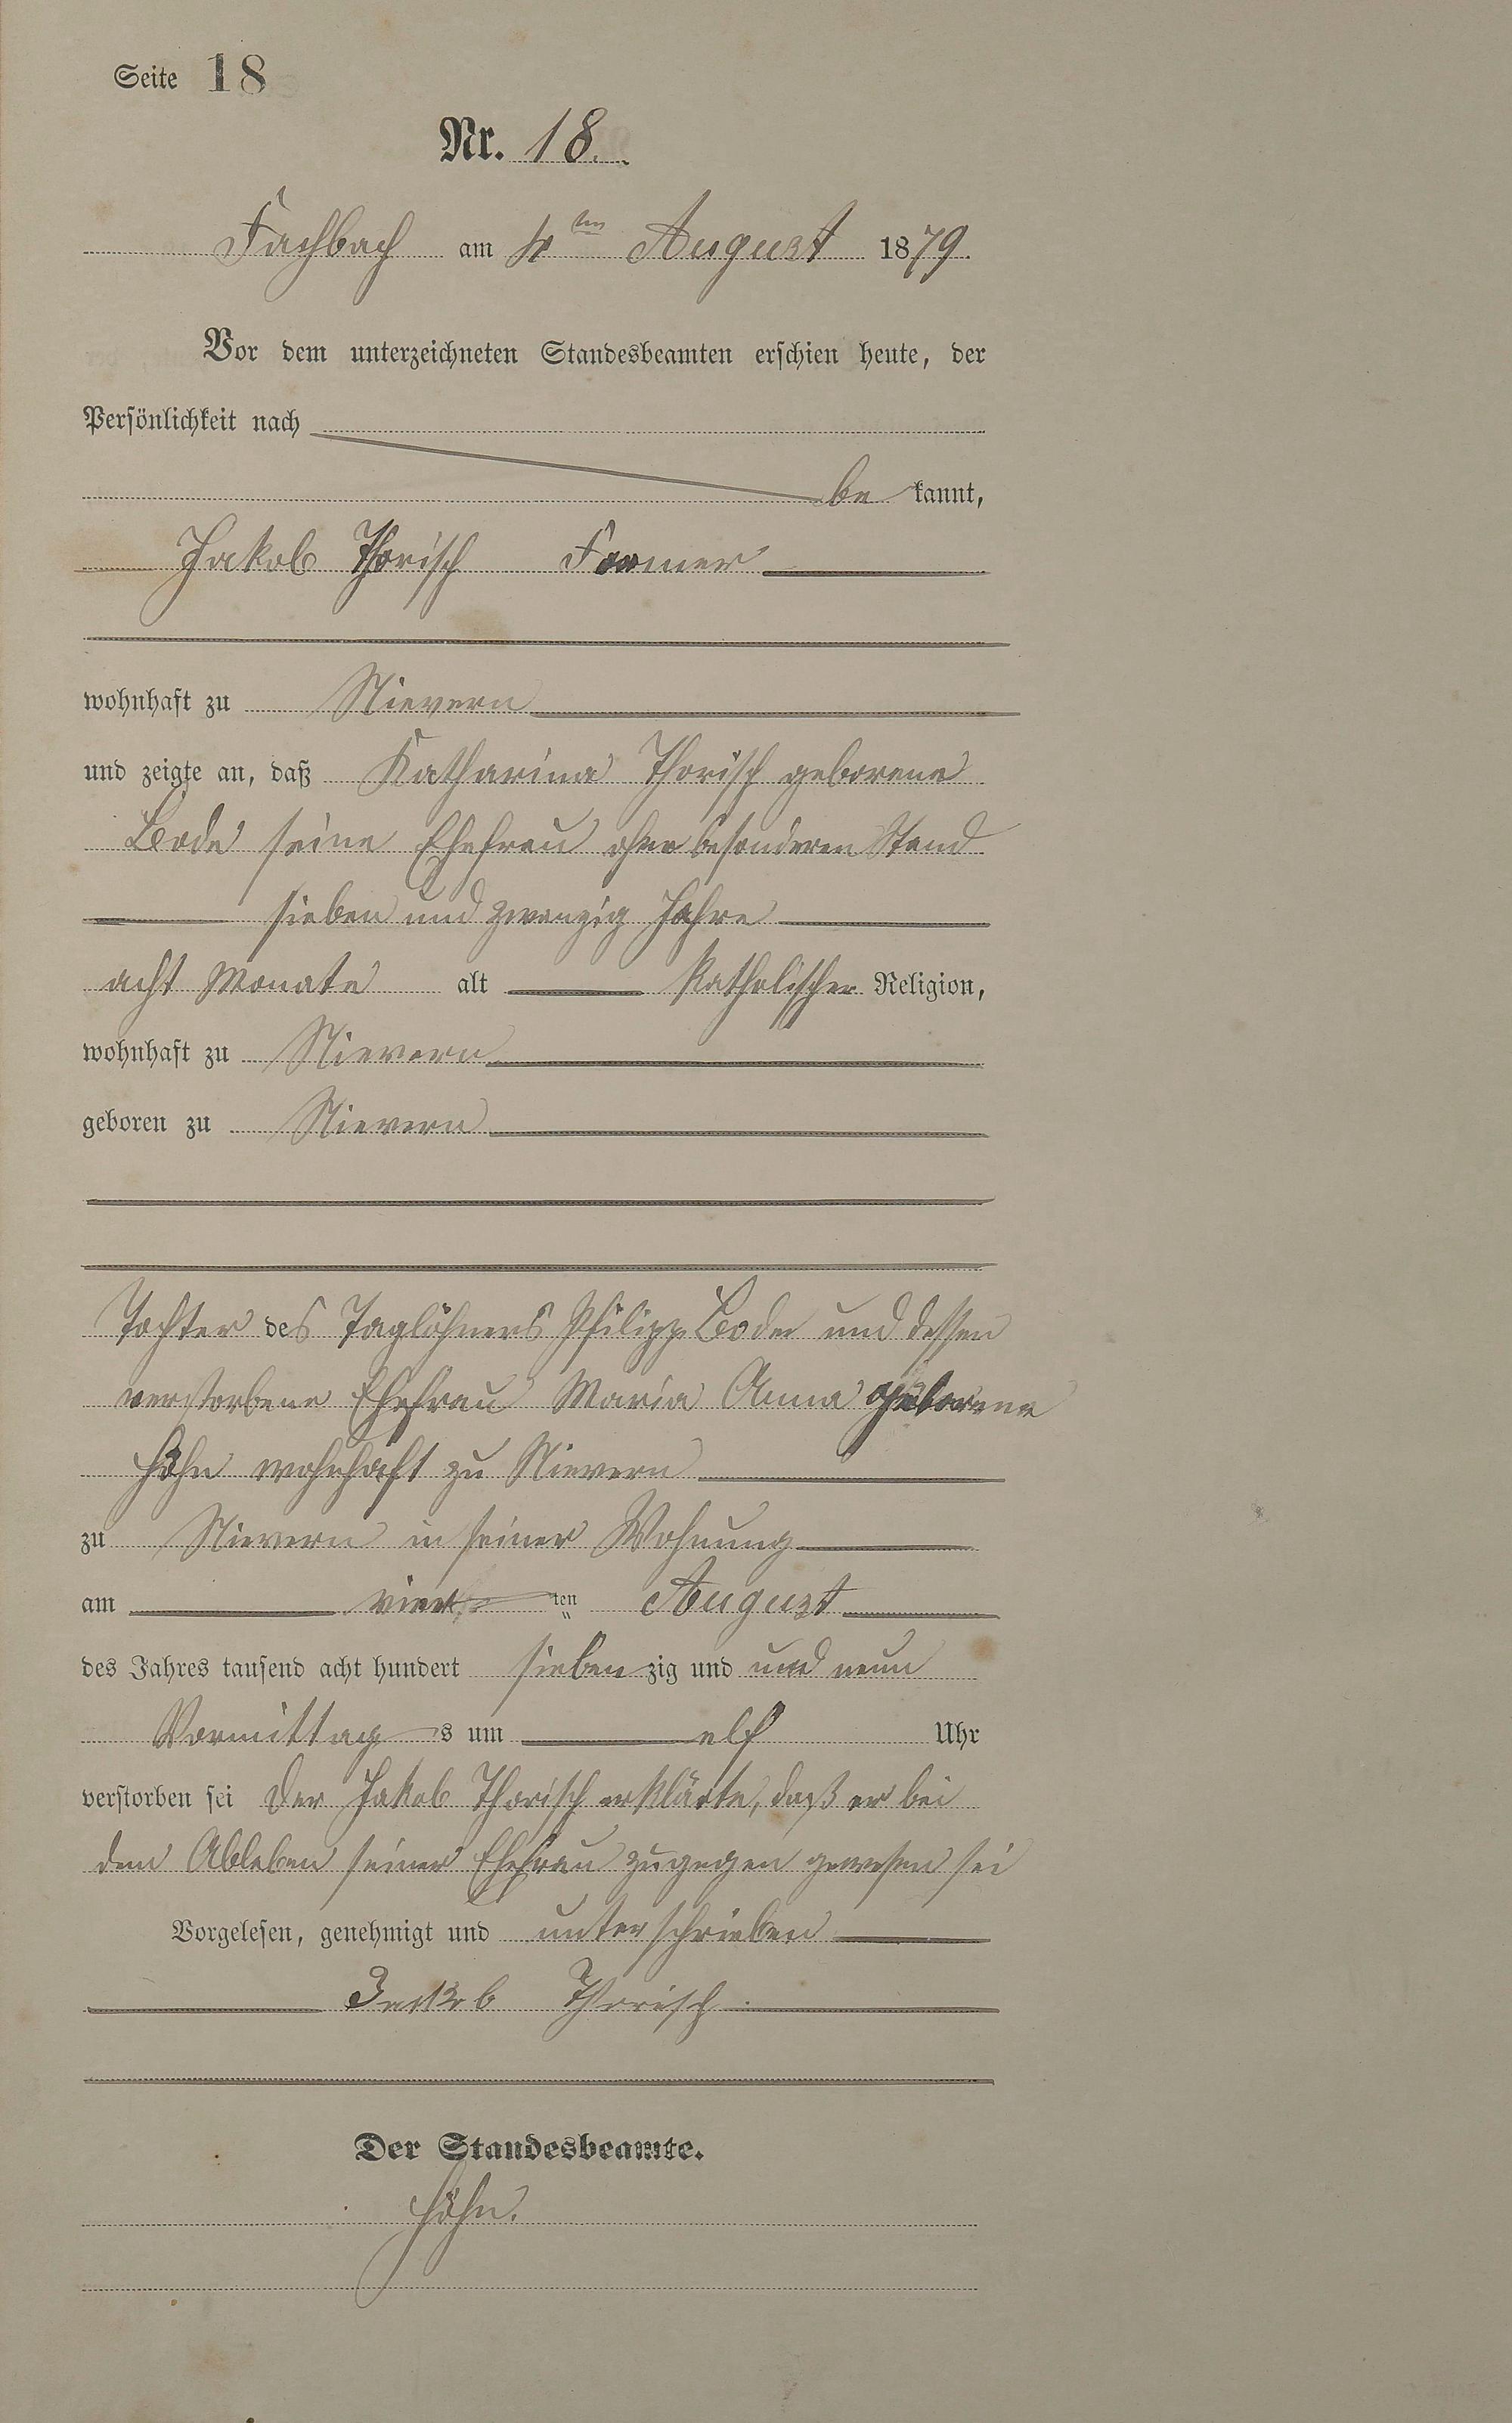 Seite 18
Nr. 18.
Fachbach am 4ten August 1879.
Vor dem unterzeichneten Standesbeamten erschien heute, der
Persönlichkeit nach
be kannt,
Jakob Thorisch Former
wohnhaft zu Nievern
und zeigte an, daß Katharina Thorisch geborene
Bode seine Ehefrau ohne besonderen Stand
sieben und zwanzig Jahre
acht Monate alt katholischer Religion,
wohnhaft zu Nievern
geboren zu Nievern
Tochter des Taglöhners Philipp Bode und dessen
verstorbene Ehefrau Maria Anna geborene
Höhn wohnhaft zu Nievern
zu Nievern in seiner Wohnung
am vier ten August
des Jahres tausend acht hundert sieben zig und und neun
Vormittag s um elf Uhr
verstorben sei Der Jakob Thorisch erklärte, daß er bei
dem Ableben seiner Ehefrau zugegen gewesen sei
Vorgelesen, genehmigt und unterschrieben
Jackob Thorisch.
Der Standesbeamte.
Höhn.